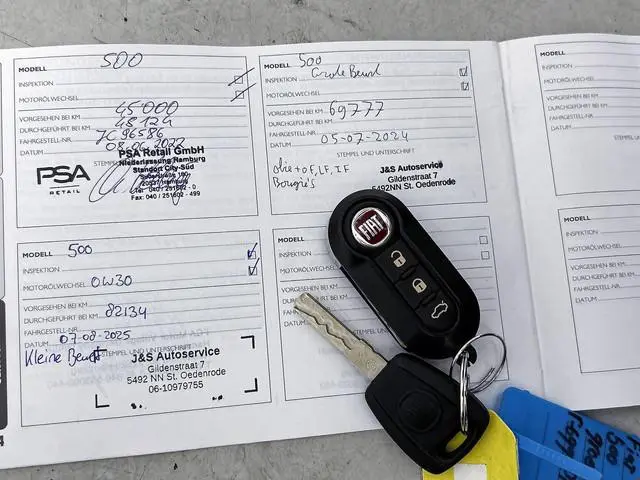 MODELL 500
INSPEKTION
MOTORÖLWECHSEL
VORGESEHEN BEI KM 45000
DURCHGEFÜHRT BEI KM 48124
FAHRGESTELL-NR. JC96586
DATUM 08.06.2022
STEMPEL
PSA
RETAIL
PSA Retail GmbH
Niederlassung Hamburg
Standort City-Süd
20537 Hamburg
Tel: 040 / 251602 - 0
Fax: 040 / 251602 - 499
MODELL 500
Grote Beurt
INSPEKTION
MOTORÖLWECHSEL
VORGESEHEN BEI KM
DURCHGEFÜHRT BEI KM 69777
FAHRGESTELL-NR.
DATUM 05-07-2024
STEMPEL UND UNTERSCHRIFT
olie + OF, LF, IF
Bougie's
J&S Autoservice
Gildenstraat 7
5492NN St. Oedenrode
MODELL 500
INSPEKTION
MOTORÖLWECHSEL 0W30
VORGESEHEN BEI KM
DURCHGEFÜHRT BEI KM 82134
FAHRGESTELL-NR.
DATUM 07-08-2025
STEMPEL UND UNTERSCHRIFT
Kleine Beurt
J&S Autoservice
Gildenstraat 7
5492 NN St. Oedenrode
06-10979755
MODELL
INSPEKTION
MOTORÖLWECHSEL
VORGESEHEN BEI KM
DURCHGEFÜHRT
FAHRGESTELL-NR.
DATUM
FIAT
MODELL
INSPEKTION
MOTORÖLWECHSEL
VORGESEHEN BEI KM
DURCHGEFÜHRT BEI KM
FAHRGESTELL-NR.
DATUM
MODELL
INSPEKTION
MOTORÖLWECHSEL
VORGESEHEN BEI
DURCHGEFÜHRT BEI
FAHRGESTELL-NR.
DATUM
Fiat
500
4